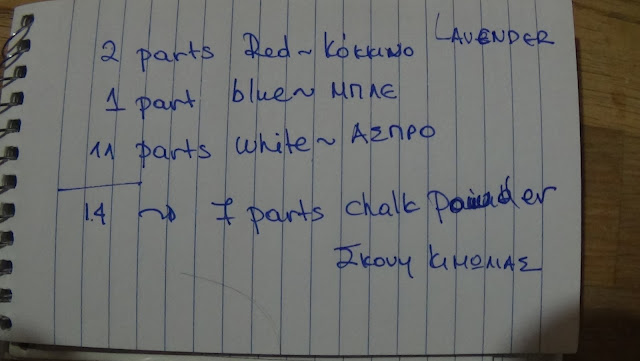 2 parts Red ~ Κόκκινο LAVENDER
1 part blue ~ ΜΠΛΕ
11 parts white ~ ΑΣΠΡΟ
14 → 7 parts chalk powder
Σκόνη ΚΙΜΩΛΙΑΣ